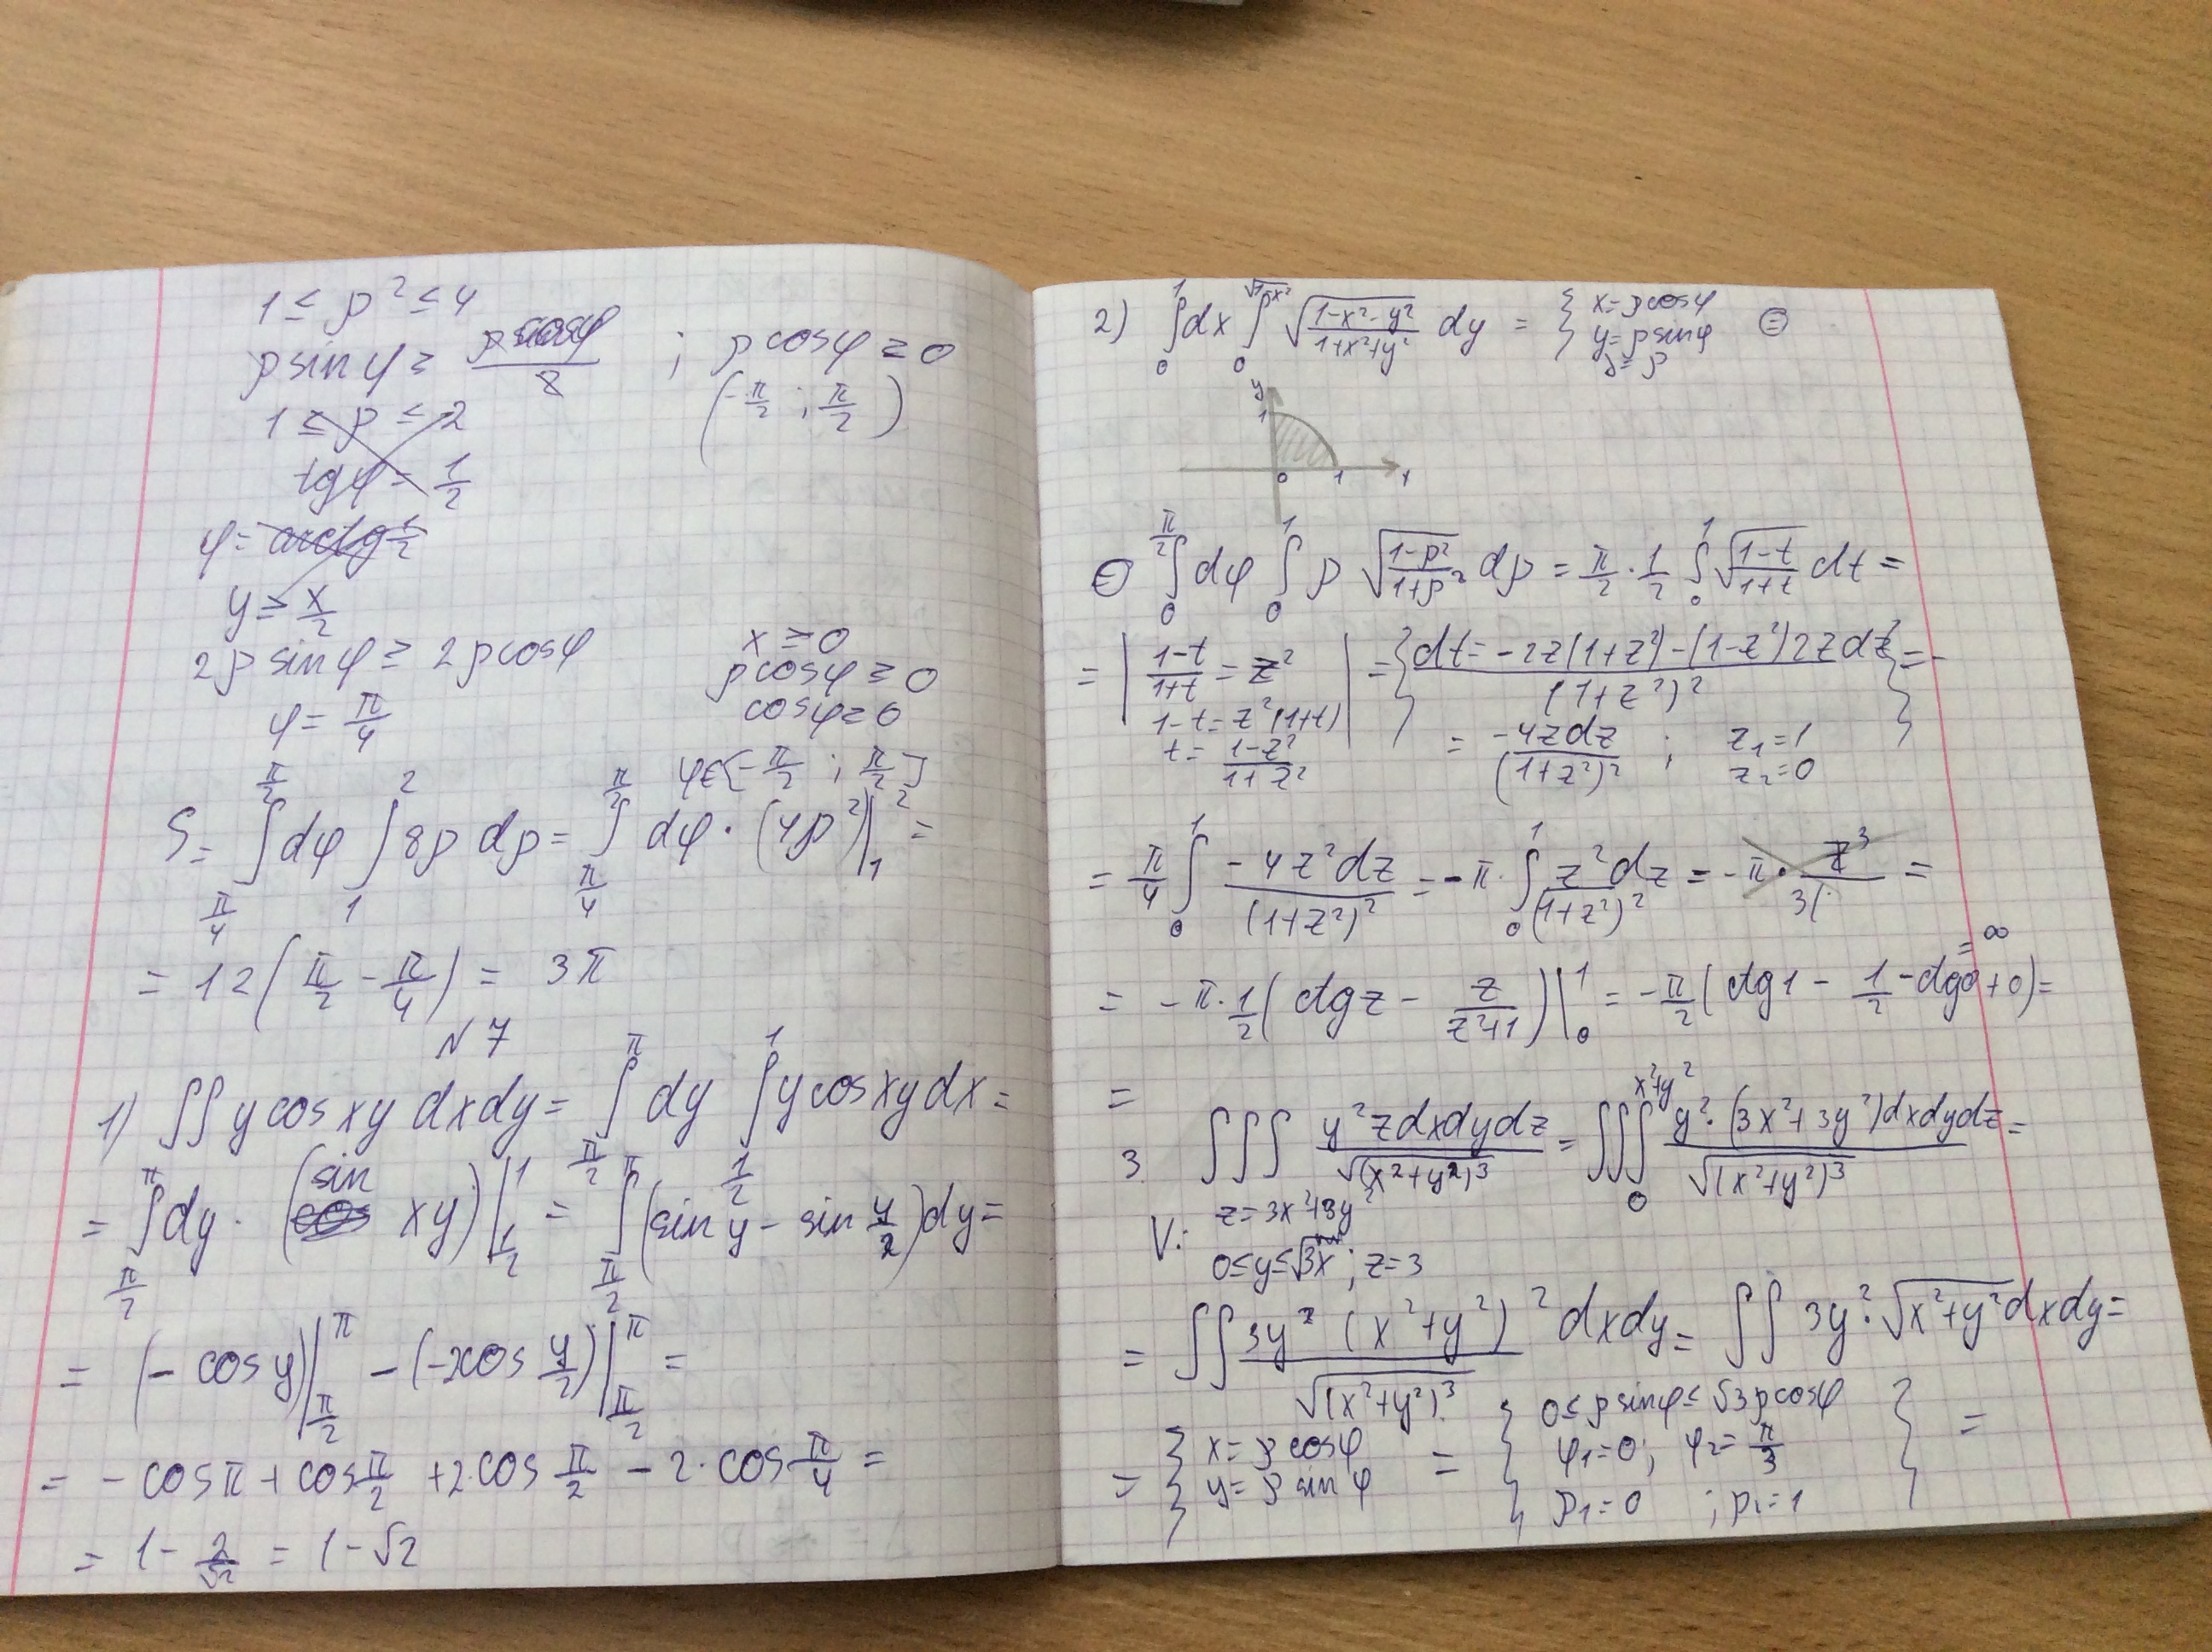 1 ≤ ρ² ≤ 4
ρ sin φ ≥ ρ cos φ / 8 ; ρ cos φ ≥ 0
1 ≤ ρ ≤ 2 (-π/2 ; π/2)
tg φ = 1/2
φ = arctg 1/2
y ≥ x/2
2ρ sin φ ≥ 2ρ cos φ x ≥ 0
ρ cos φ ≥ 0
φ = π/4 cos φ ≥ 0
φ ∈ [-π/2 ; π/2]
S = ∫_{π/4}^{π/2} dφ ∫_1^2 8ρ dρ = ∫_{π/4}^{π/2} dφ · (4ρ²)|_1^2 =
= 12(π/2 - π/4) = 3π
N 7
1) ∫∫ y cos xy dxdy = ∫_{π/2}^{π} dy ∫_{1/2}^{1} y cos xy dx =
= ∫_{π/2}^{π} dy · (sin xy)|_{1/2}^{1} = ∫_{π/2}^{π} (sin y - sin y/2) dy =
= (- cos y)|_{π/2}^{π} - (-2cos y/2)|_{π/2}^{π} =
= - cos π + cos π/2 + 2·cos π/2 - 2·cos π/4 =
= 1 - 2/√2 = 1 - √2
2) ∫_0^1 dx ∫_0^{√1-x²} √((1-x²-y²)/(1+x²+y²)) dy = { x = ρ cos φ
y = ρ sin φ ⊜
ρ
y
1
0 1
⊜ ∫_0^{π/2} dφ ∫_0^1 ρ √((1-ρ²)/(1+ρ²)) dρ = π/2 · 1/2 ∫_0^1 √((1-t)/(1+t)) dt =
= | (1-t)/(1+t) = z² | = { dt = (-2z(1+z²) - (1-z²)2z dz)/(1+z²)² } =
1-t = z²(1+t)
t = (1-z²)/(1+z²) = -4zdz/(1+z²)² ; z₁ = 1
z₂ = 0
= π/4 ∫_0^1 -4z²dz/(1+z²)² = -π · ∫_0^1 z²dz/(1+z²)² = -π · z³/3( =
= ∞
= -π · 1/2 ( ctg z - z/(z²+1) )|_0^1 = -π/2 ( ctg 1 - 1/2 - ctg 0 + 0) =
=
3. ∫∫∫ y²zdxdydz/√(x²+y²)³ = ∫∫∫_0^{x²+y²} y²·(3x²+3y²)dxdydz/√(x²+y²)³ =
V: z = 3x²+3y²
0 ≤ y ≤ √3x ; z = 3
= ∫∫ 3y²(x²+y²)² dxdy/√(x²+y²)³ = ∫∫ 3y²·√x²+y² dxdy =
= { x = ρ cos φ = { 0 ≤ ρ sin φ ≤ √3 ρ cos φ } =
y = ρ sin φ φ₁ = 0 ; φ₂ = π/3
ρ₁ = 0 ; ρ₂ = 1